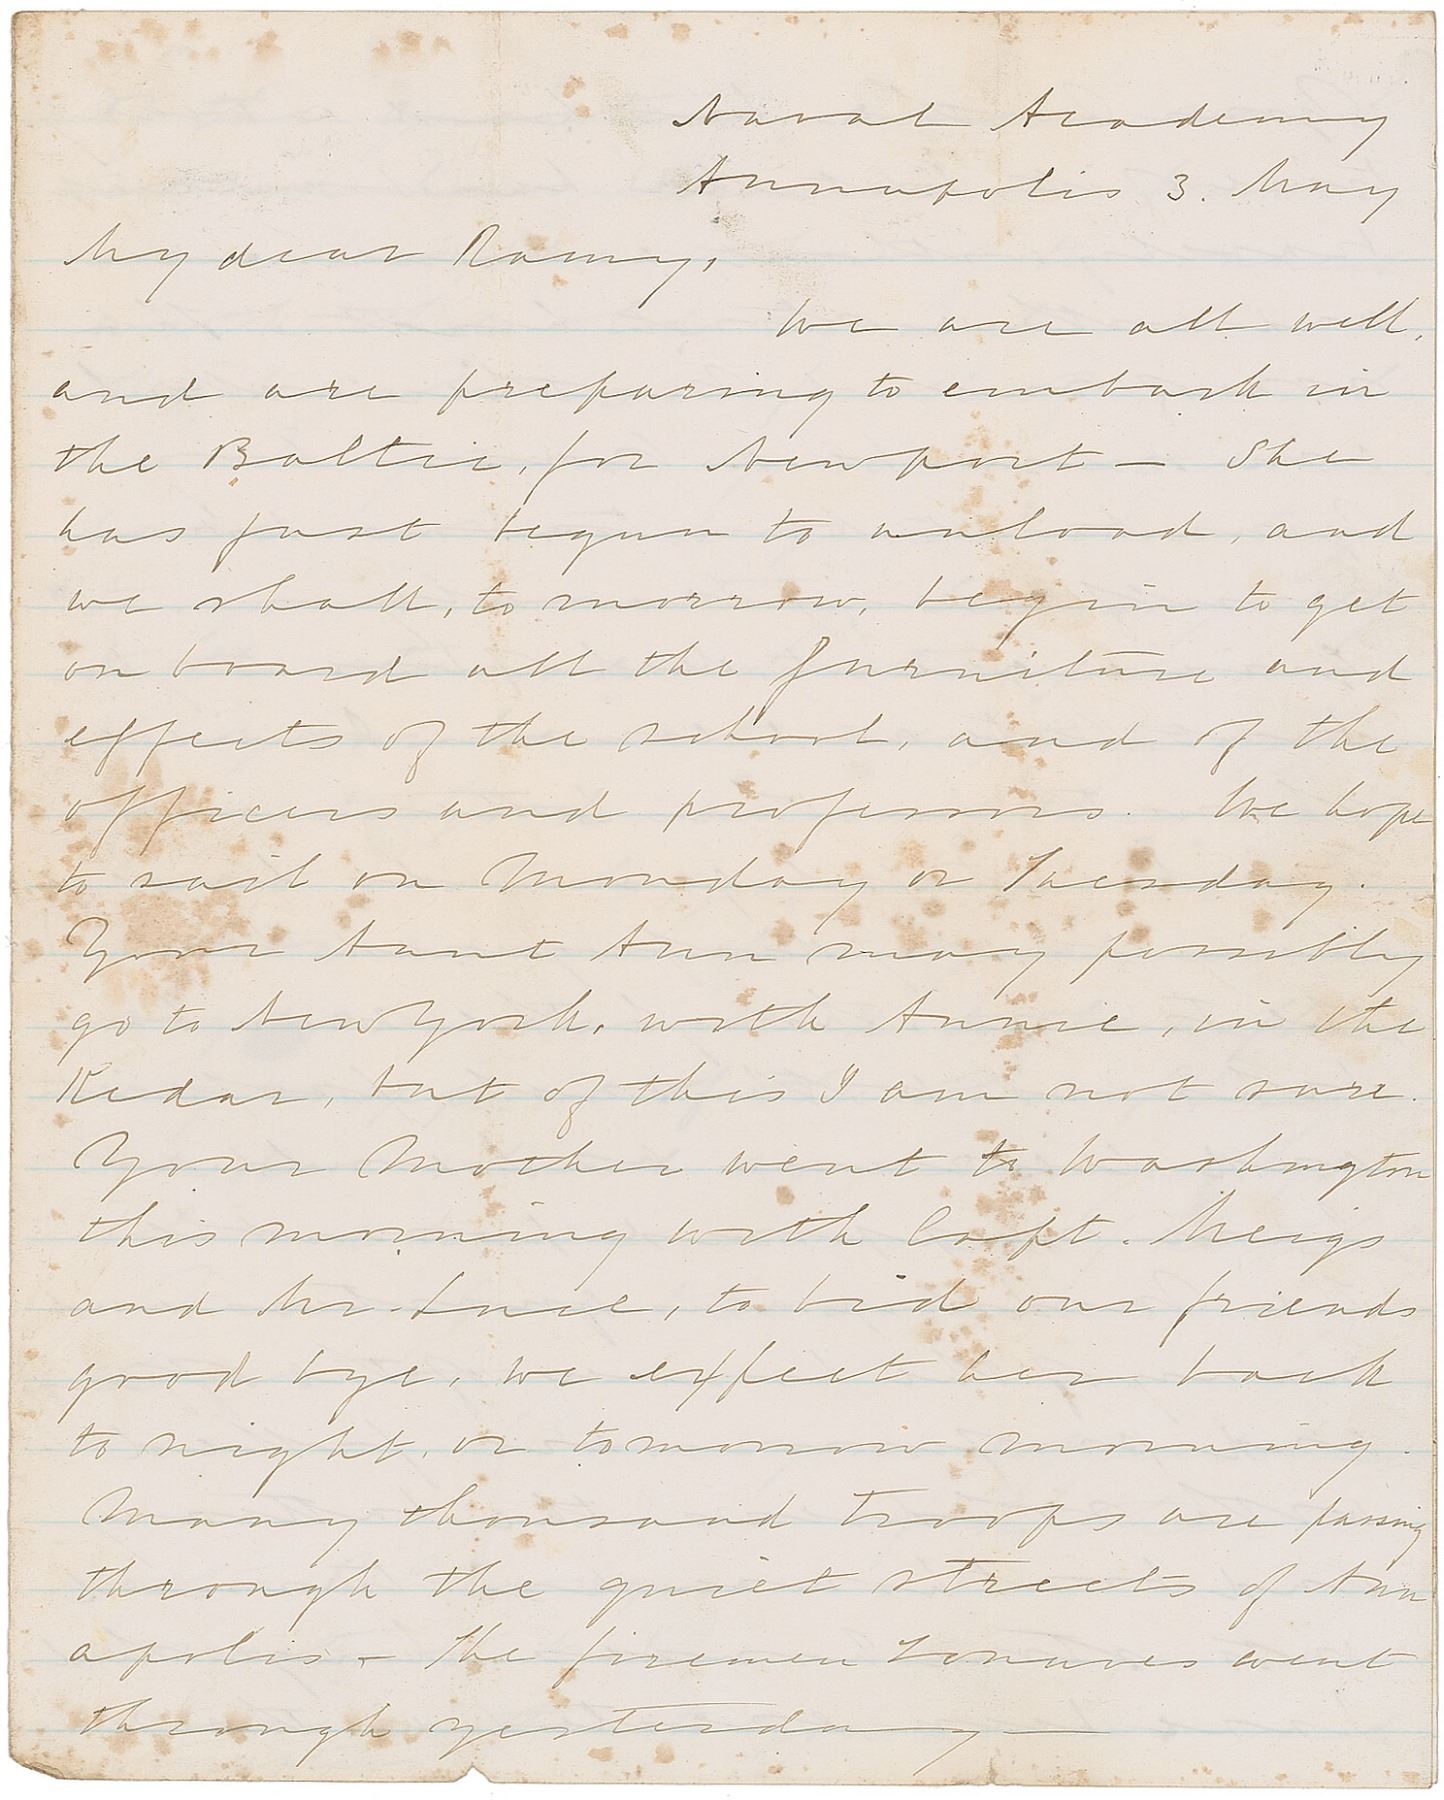 Naval Academy
Annapolis 3. May
My dear Romy,
We are all well,
and are preparing to embark in
the Baltic, for Newport — She
has just begun to unload, and
we shall, to morrow, begin to get
on board all the furniture and
effects of the school, and of the
officers and professors. We hope
to sail on Monday or Tuesday.
Your Aunt Ann may possibly
go to New York, with Annie, in the
Kedar, but of this I am not sure.
Your Mother went to Washington
this morning with Capt. Meigs
and Mr. Luce, to bid our friends
good bye, we expect her back
to night, or tomorrow morning.
Many thousand troops are passing
through the quiet streets of Ann
apolis – The firemen Zouaves went
through yesterday —